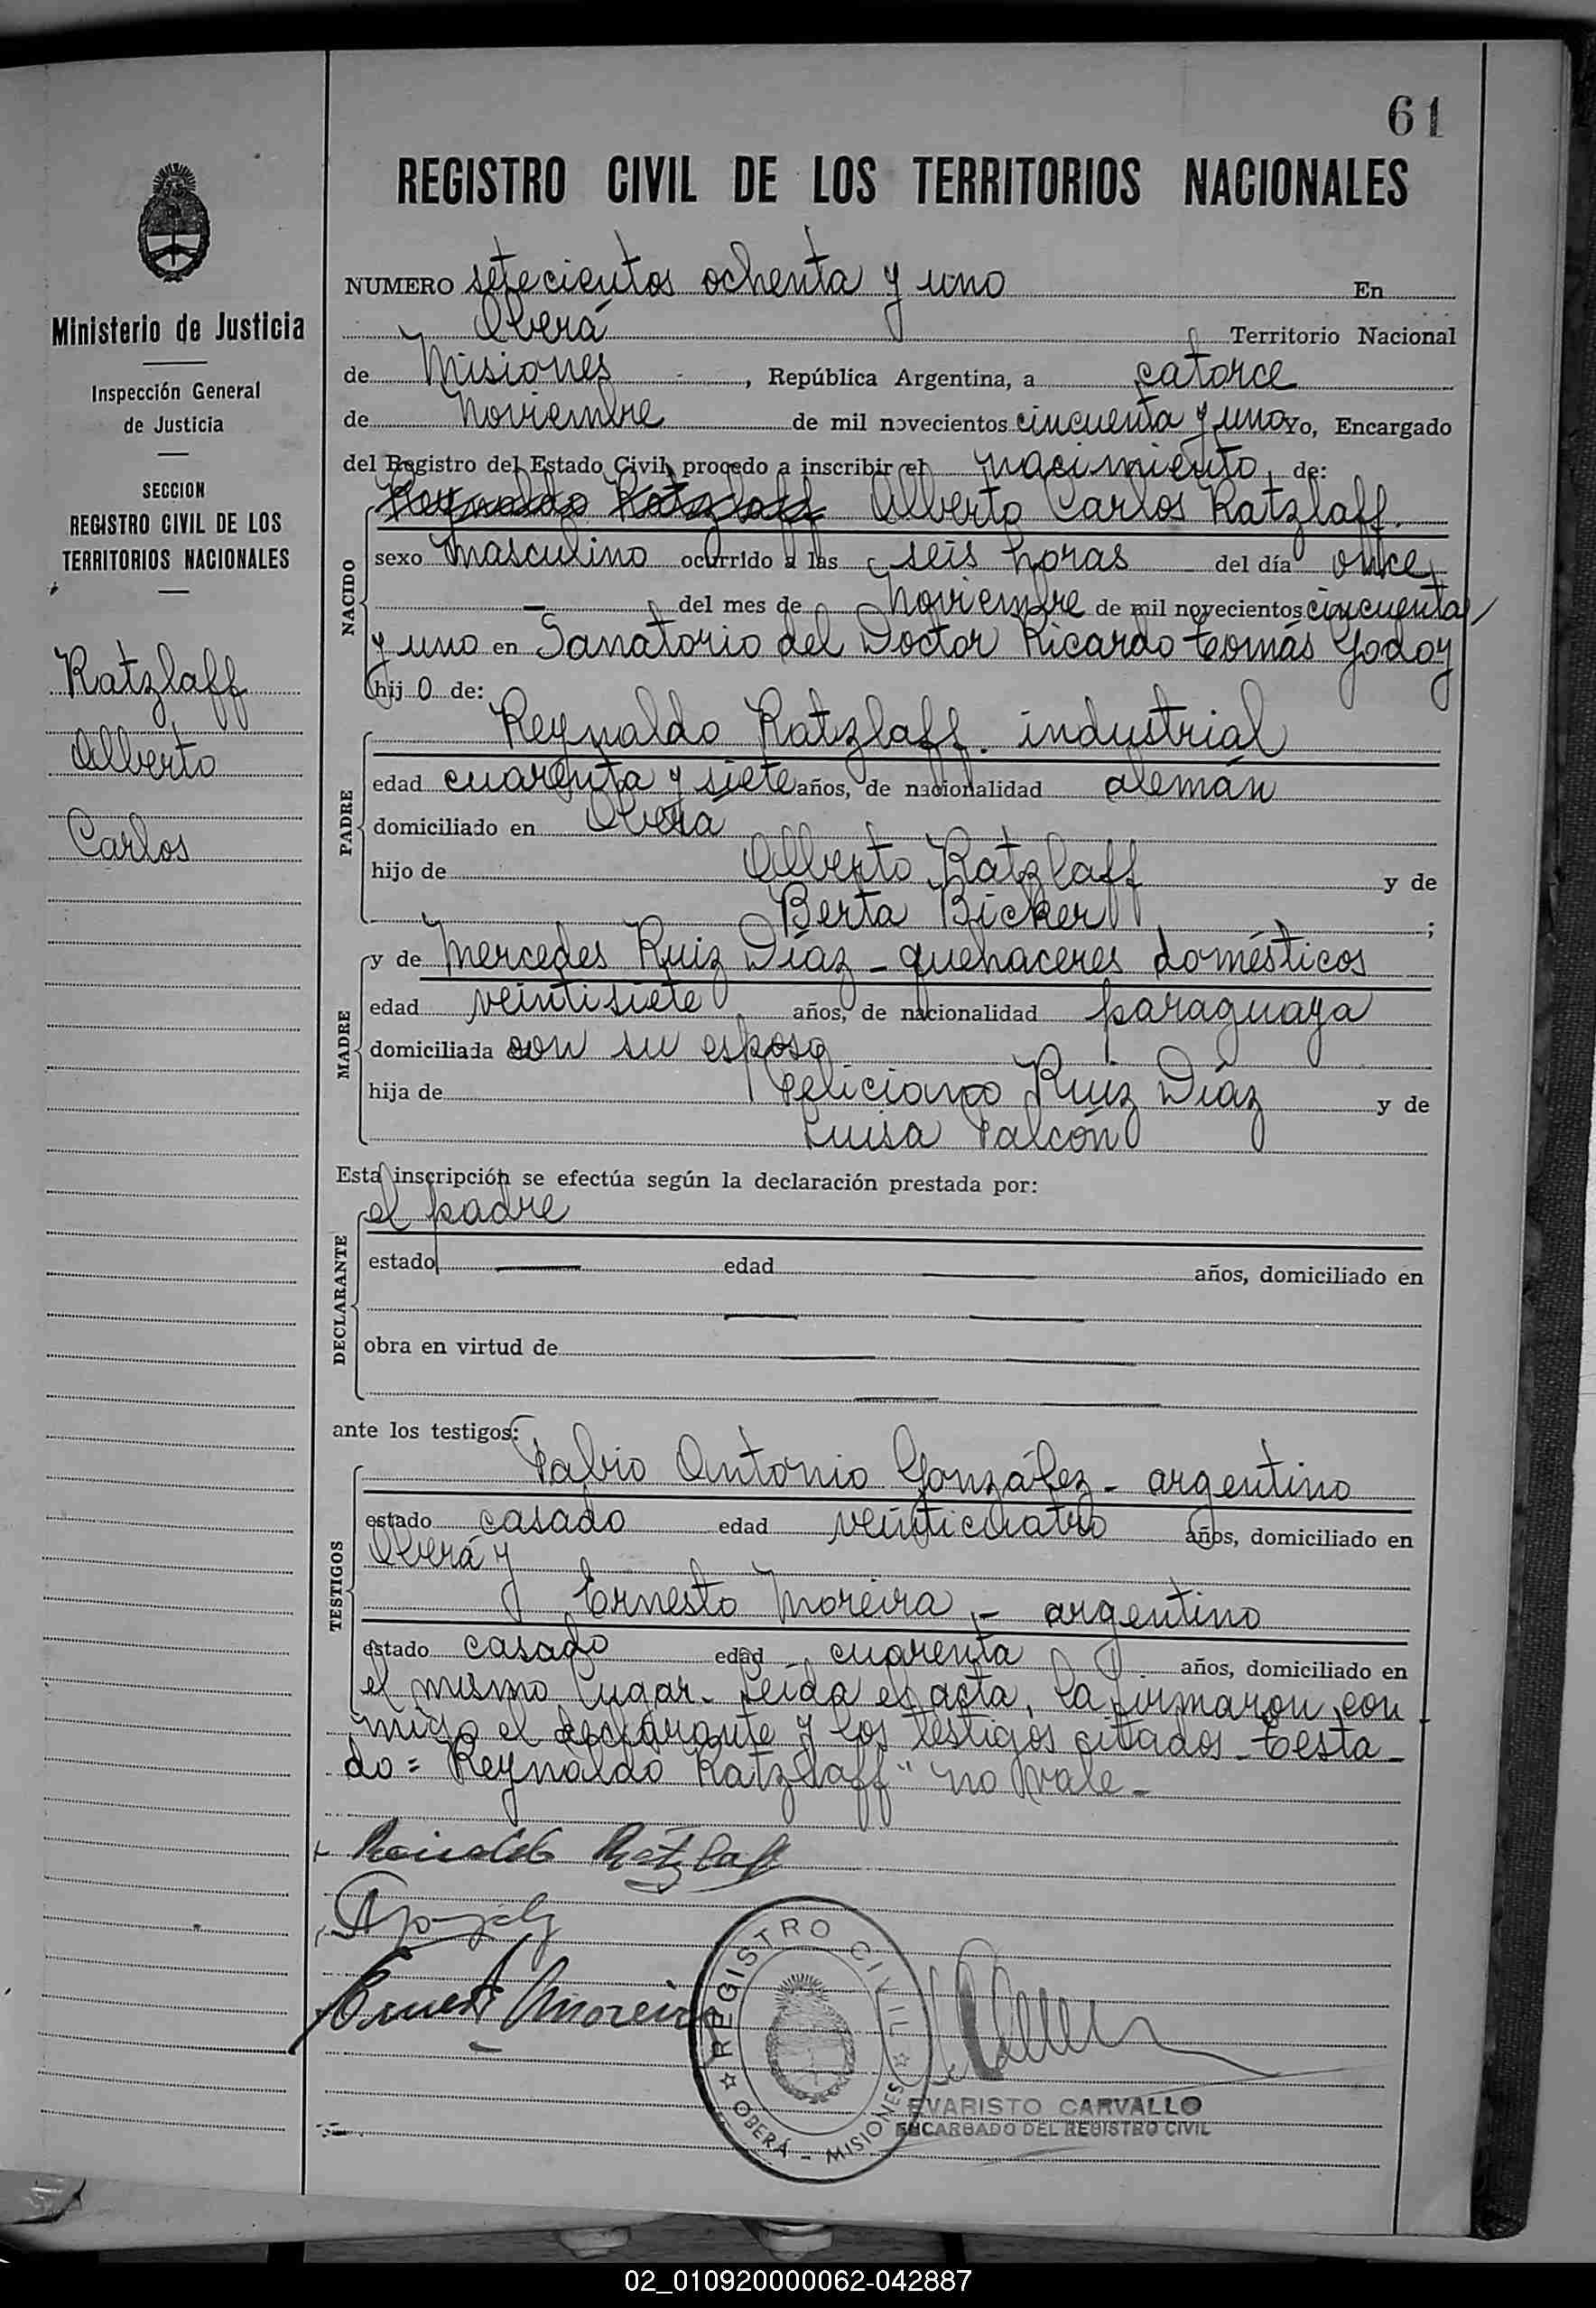 61
REGISTRO CIVIL DE LOS TERRITORIOS NACIONALES
Ministerio de Justicia
Inspección General
de Justicia
SECCION
REGISTRO CIVIL DE LOS
TERRITORIOS NACIONALES
Katzlaff
Alberto
Carlos
NUMERO setecientos ochenta y uno En
Oberá Territorio Nacional
de Misiones, República Argentina, a catorce
de Noviembre de mil novecientos cincuenta y uno Yo, Encargado
del Registro del Estado Civil, procedo a inscribir el nacimiento de:
Reynaldo Katzlaff Alberto Carlos Katzlaff.
NACIDO
sexo masculino ocurrido a las seis horas del día once
del mes de Noviembre de mil novecientos cincuenta
y uno en Sanatorio del Doctor Ricardo Tomás Godoy
hijo de:
PADRE
Reynaldo Katzlaff. industrial
edad cuarenta y siete años, de nacionalidad alemán
domiciliado en Oberá
hijo de Alberto Katzlaff y de
Berta Bicker;
MADRE
y de Mercedes Ruiz Díaz - quehaceres domésticos
edad veintisiete años, de nacionalidad paraguaya
domiciliada con su esposo
hija de Feliciano Ruiz Díaz y de
Luisa Falcón
Esta inscripción se efectúa según la declaración prestada por:
DECLARANTE
el padre
estado edad años, domiciliado en
obra en virtud de
ante los testigos:
TESTIGOS
Fabio Antonio González - argentino
estado casado edad veinticuatro años, domiciliado en
Oberá y
Ernesto Moreira, - argentino
estado casado edad cuarenta años, domiciliado en
el mismo lugar. Leída el acta, la firmaron con
migo el declarante y los testigos citados. Testa-
do = Reynaldo Katzlaff" no vale-
Katzlaff
Ernesto Moreira
REGISTRO CIVIL
OBERÁ - MISIONES
EVARISTO CARVALLO
ENCARGADO DEL REGISTRO CIVIL
02_010920000062-042887